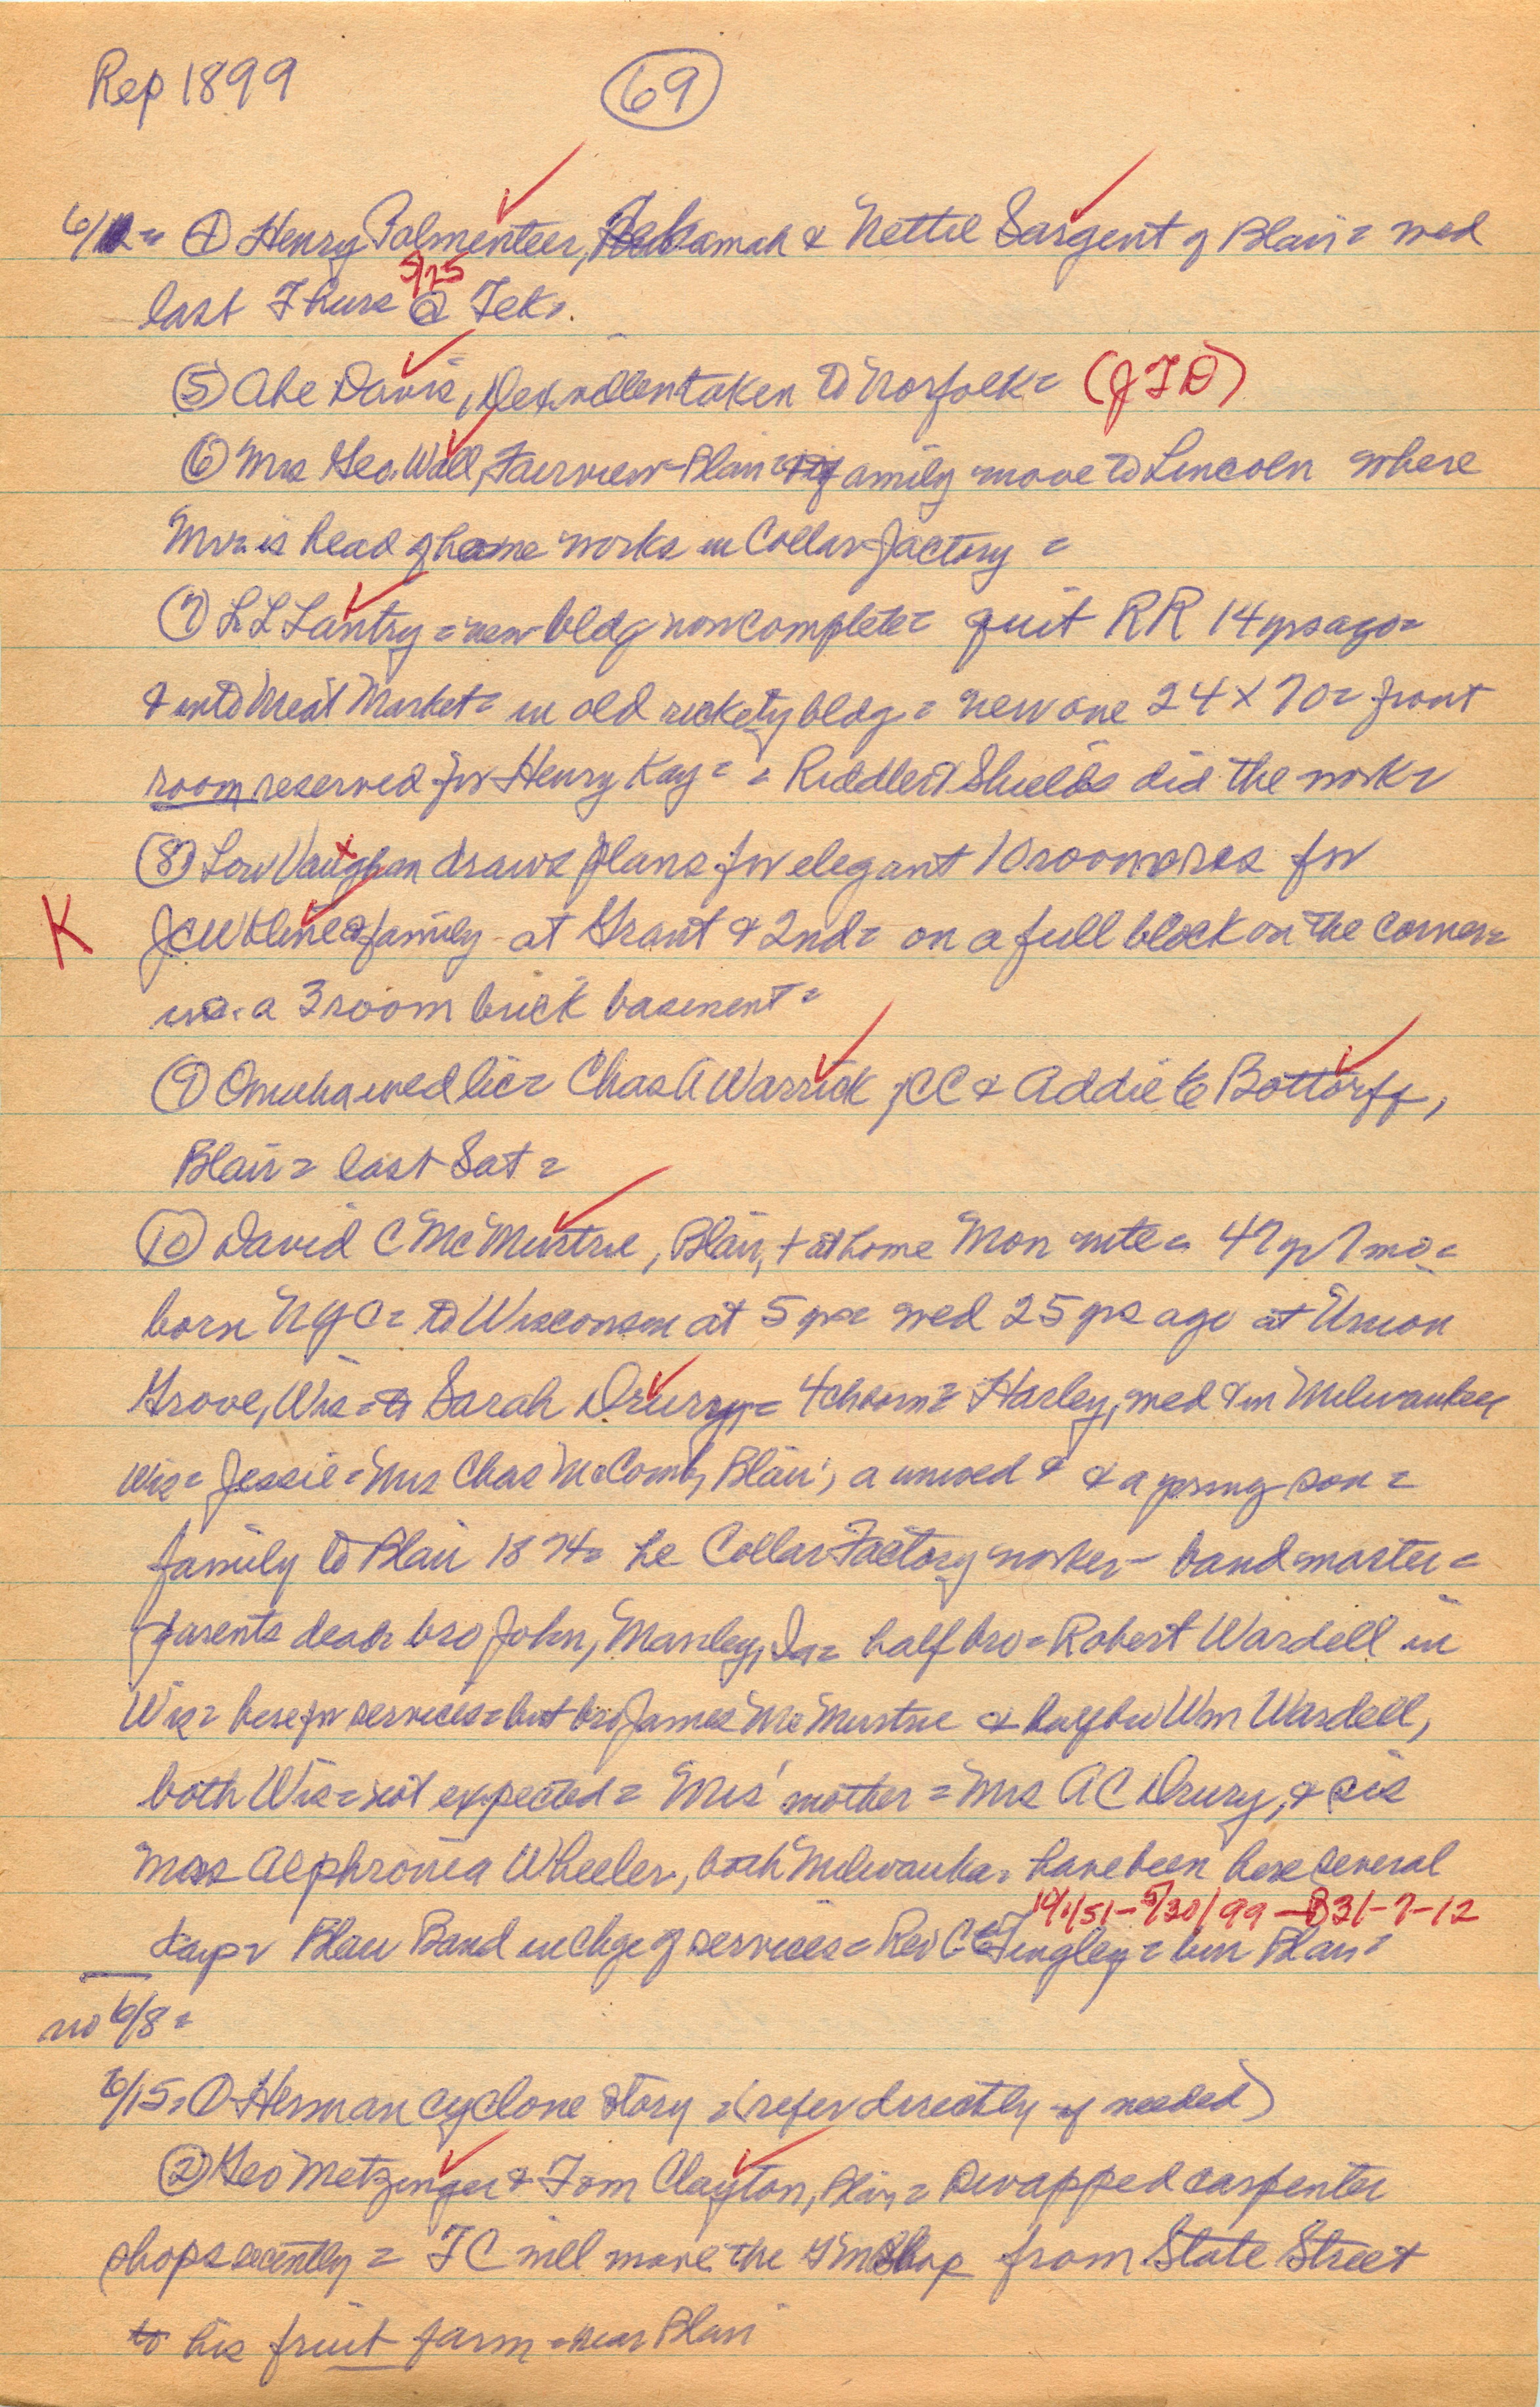 Rep 1899 69
6/1 = ④ Henry Palmenteer, Tekamah & Nettie Sargent of Blair = wed
5/25
last Thurs @ Tek =.
⑤ Abe Davis, taken to Norfolk = (JTD)
⑥ Mrs Geo. Wall, Fairview-Blair = family move to Lincoln where
Mr is head of harne works in Collar Factory =
⑦ L L Lantry = new bldg now complete = quit RR 14 yrs ago =
& into Meat Market = in old rickety bldg = new one 24 x 70 = front
room reserved for Henry Kay = = Riddler & Shields did the work =
⑧ Lew Vaughan draws plans for elegant 10 room res for
K JCW Kline & family - at Grant & 2nd = on a full block on the corner =
a 3 room brick basement =
⑨ Omaha wed lic = Chas A Warrick, & Addie E Bottorff,
Blair = last Sat =
⑩ David C McMurtrie, Blair, + at home Mon nite = 47 yr 7 mo =
born NYC = to Wisconsin at 5 yr = wed 25 yrs ago at Union
Grove, Wis = Sarah Drury = 4 ch born = Harley, wed & in Milwaukee
Wis = Jessie = Mrs Chas McComb, Blair; a unwed & & a young son =
family to Blair 1874 = he Collar Factory worker - bandmaster =
parents dead = bro John, Manley, Ia = half bro = Robert Wardell in
Wis = here for services = but bro James McMurtrie & half bro Wm Wardell,
both Wis = not expected = Mrs' mother = Mrs A C Drury, & sis
Miss Alphronia Wheeler, both Milwaukee = have been here several
10/1/51 - 5/30/99 - B31-7-12
days = Blair Band in chge of services = Rev C E Tingley = bur Blair =
no 6/8 =
6/15 = ① Herman cyclone story = (refer directly if needed)
② Geo Metzinger & Tom Clayton, Blair = swapped carpenter
shops recently = TC will move the shop from State Street
to his fruit farm = near Blair